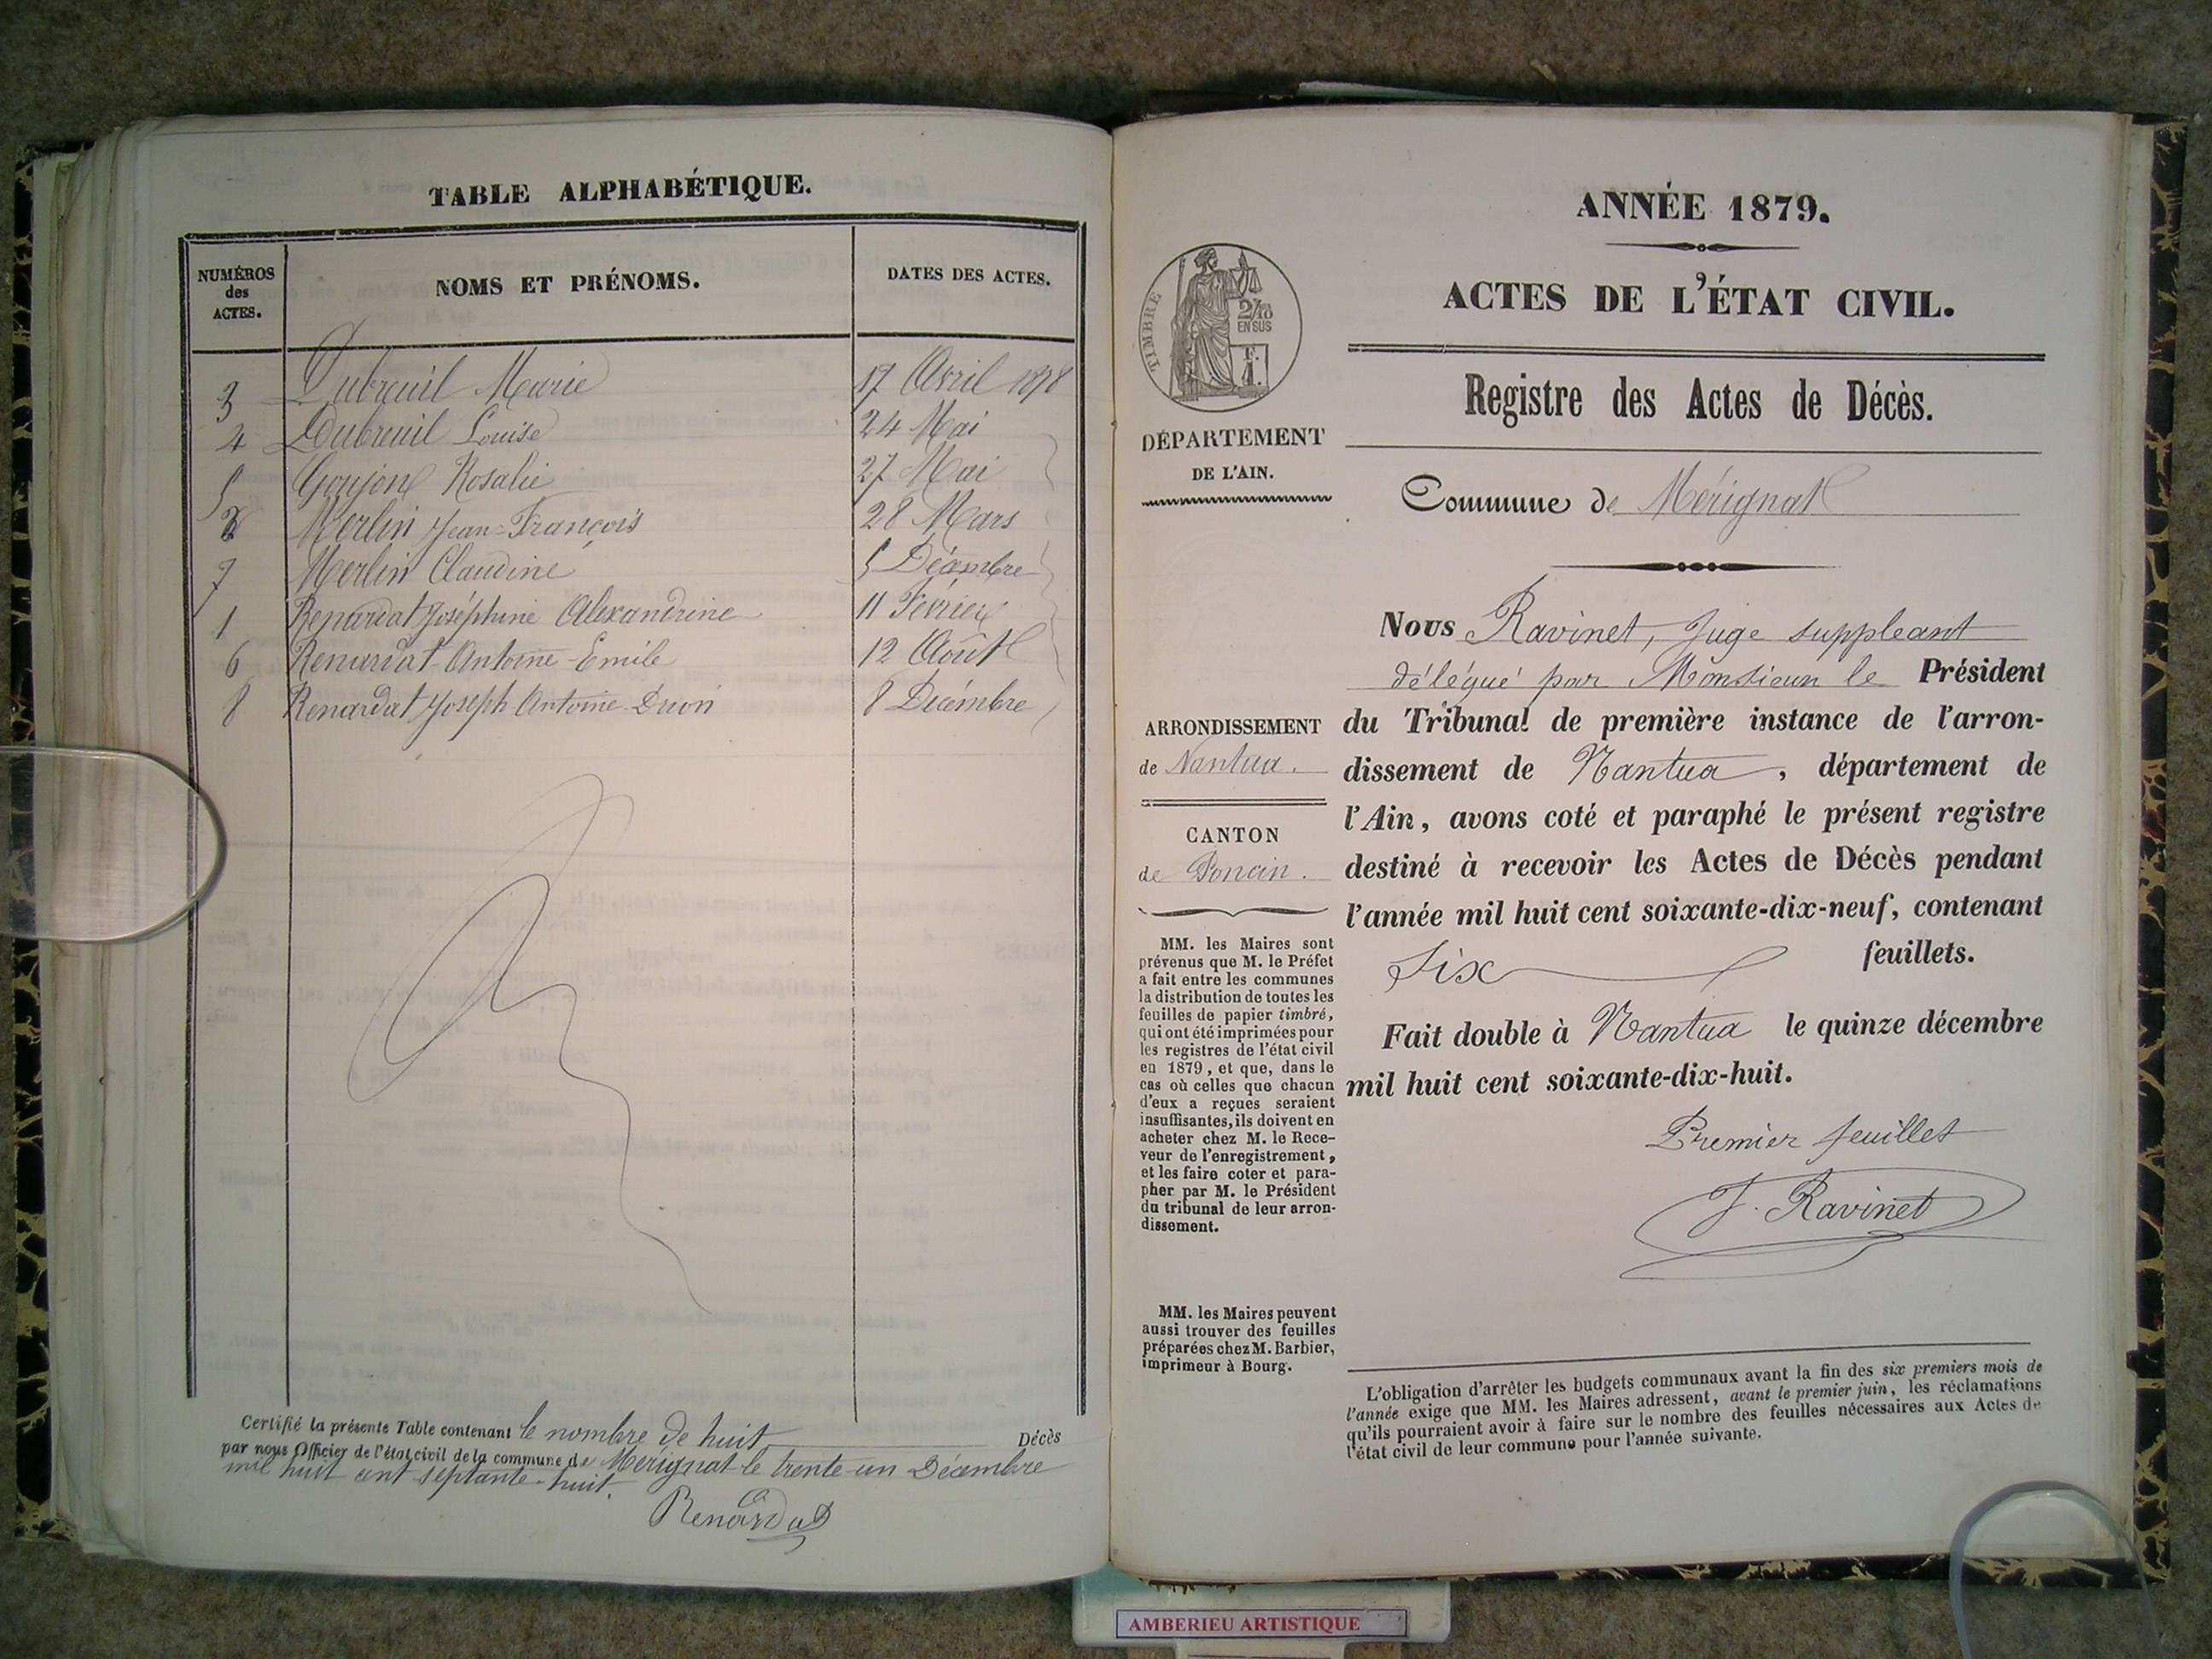 TABLE ALPHABÉTIQUE.
NUMÉROS des ACTES. NOMS ET PRÉNOMS. DATES DES ACTES.
3 Dubreuil Marie 17 Avril 1878
4 Dubreuil Louise 24 Mai
5 Goujon Rosalie 27 Mai
2 Merlin Jean-François 28 Mars
7 Merlin Claudine 5 Décembre
1 Renardat Joséphine Alexandrine 11 Février
6 Renardat Antoine-Emile 12 Août
8 Renardat Joseph Antoine 8 Décembre
Certifié la présente Table contenant le nombre de huit Décès
par nous Officier de l'état civil de la commune de Mérignat le trente-un Décembre
mil huit cent septante-huit.
Renardat
ANNÉE 1879.
ACTES DE L'ÉTAT CIVIL.
Registre des Actes de Décès.
Commune de Mérignat
TIMBRE
2/10
EN SUS
F.
DÉPARTEMENT
DE L'AIN.
ARRONDISSEMENT
de Nantua.
CANTON
de Poncin.
MM. les Maires sont
prévenus que M. le Préfet
a fait entre les communes
la distribution de toutes les
feuilles de papier timbré,
qui ont été imprimées pour
les registres de l'état civil
en 1879, et que, dans le
cas où celles que chacun
d'eux a reçues seraient
insuffisantes, ils doivent en
acheter chez M. le Rece-
veur de l'enregistrement,
et les faire coter et para-
pher par M. le Président
du tribunal de leur arron-
dissement.
MM. les Maires peuvent
aussi trouver des feuilles
préparées chez M. Barbier,
imprimeur à Bourg.
Nous Ravinet, Juge suppleant
délégué par Monsieur le Président
du Tribunal de première instance de l'arron-
dissement de Nantua, département de
l'Ain, avons coté et paraphé le présent registre
destiné à recevoir les Actes de Décès pendant
l'année mil huit cent soixante-dix-neuf, contenant
Six feuillets.
Fait double à Nantua le quinze décembre
mil huit cent soixante-dix-huit.
Premier feuillet
J. Ravinet
L'obligation d'arrêter les budgets communaux avant la fin des six premiers mois de
l'année exige que MM. les Maires adressent, avant le premier juin, les réclamations
qu'ils pourraient avoir à faire sur le nombre des feuilles nécessaires aux Actes de
l'état civil de leur commune pour l'année suivante.
AMBERIEU ARTISTIQUE